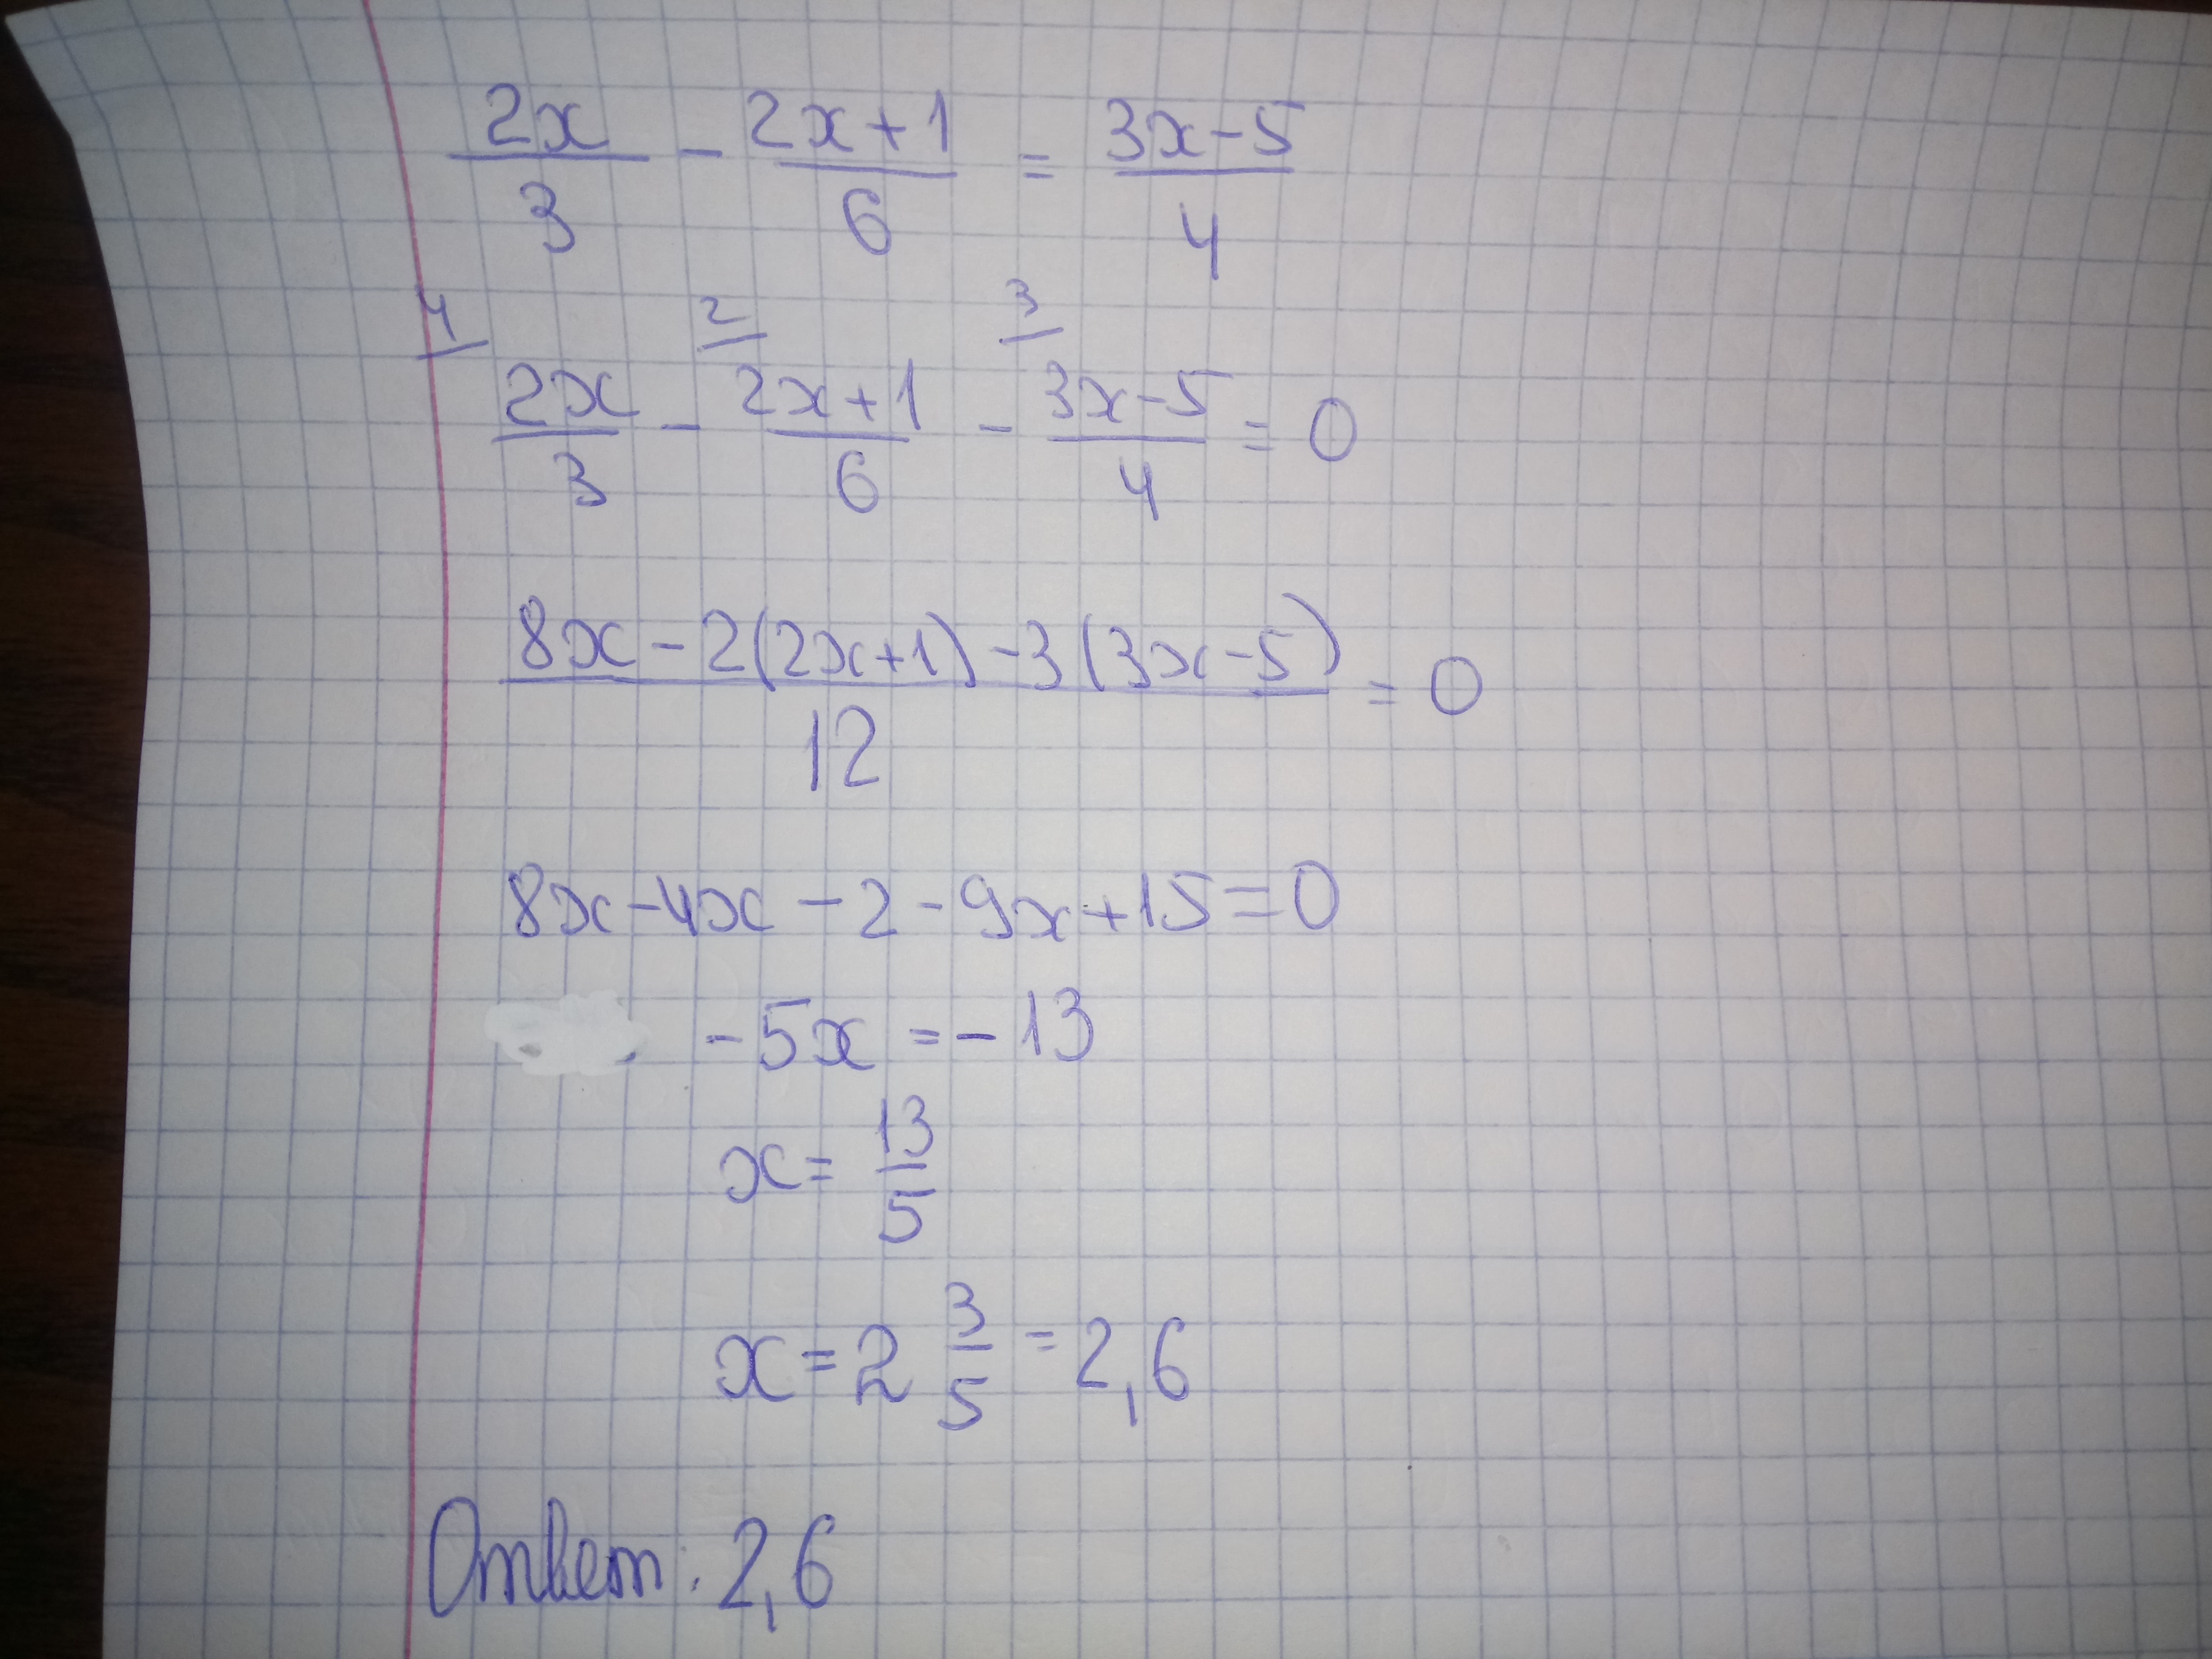 2x/3 - 2x+1/6 = 3x-5/4
4 2 3
2x/3 - 2x+1/6 - 3x-5/4 = 0
8x-2(2x+1)-3(3x-5)/12 = 0
8x-4x-2-9x+15=0
-5x=-13
x=13/5
x=2 3/5=2,6
Ответ: 2,6